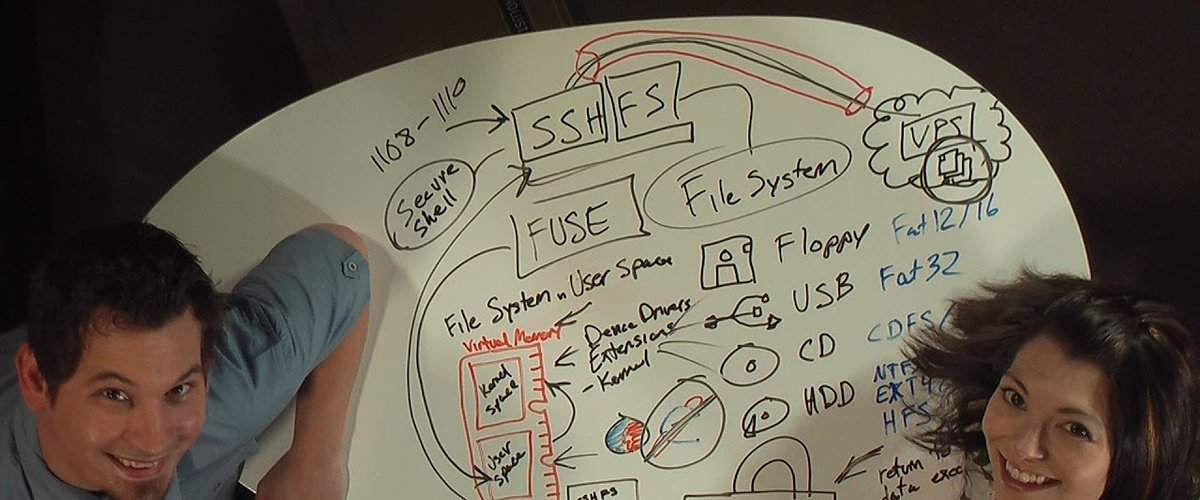 1108-1110
SSH FS
VPS
Secure
Shell
FUSE
File System
Floppy
Fat12/16
File System in User Space
USB
Fat32
Virtual Memory
Device Drivers
Extensions
- Kernel
CD
CDFS/
Kernel
Space
HDD
NTFS
EXT4
HFS
User
Space
SSHFS
return
data